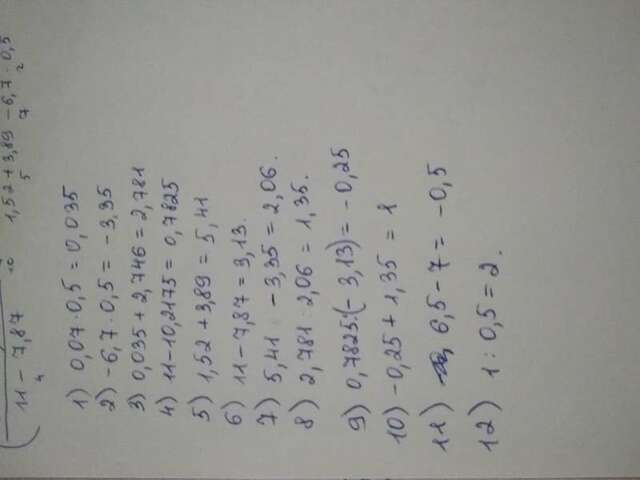 11 - 7,87 1,52 + 3,89 - 6,7 · 0,5
4 10 5 7 2
1) 0,07 · 0,5 = 0,035
2) -6,7 · 0,5 = -3,35
3) 0,035 + 2,746 = 2,781
4) 11 - 10,2175 = 0,7825
5) 1,52 + 3,89 = 5,41
6) 11 - 7,87 = 3,13.
7) 5,41 - 3,35 = 2,06.
8) 2,781 : 2,06 = 1,35.
9) 0,7825 : (-3,13) = -0,25
10) -0,25 + 1,35 = 1
11) 6,5 - 7 = -0,5
12) 1 : 0,5 = 2.